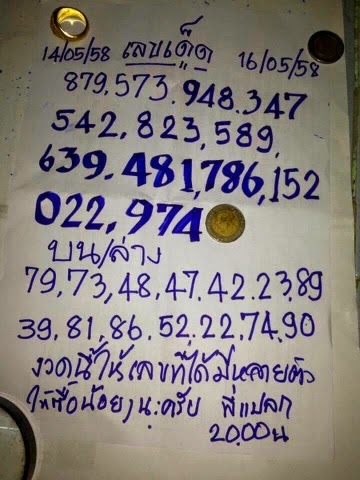 14/05/58 เลขเด็ด 16/05/58
879.573.948.347
542,823,589,
639.481,786,152
022,974
บน/ล่าง
79,73,48,47.42.23.89
39.81,86.52.22.74.90
งวดนี้ให้เลขที่ได้มีหลายตัว
ให้ซื้อน้อยๆนะครับ สี่แปลก
20.00น